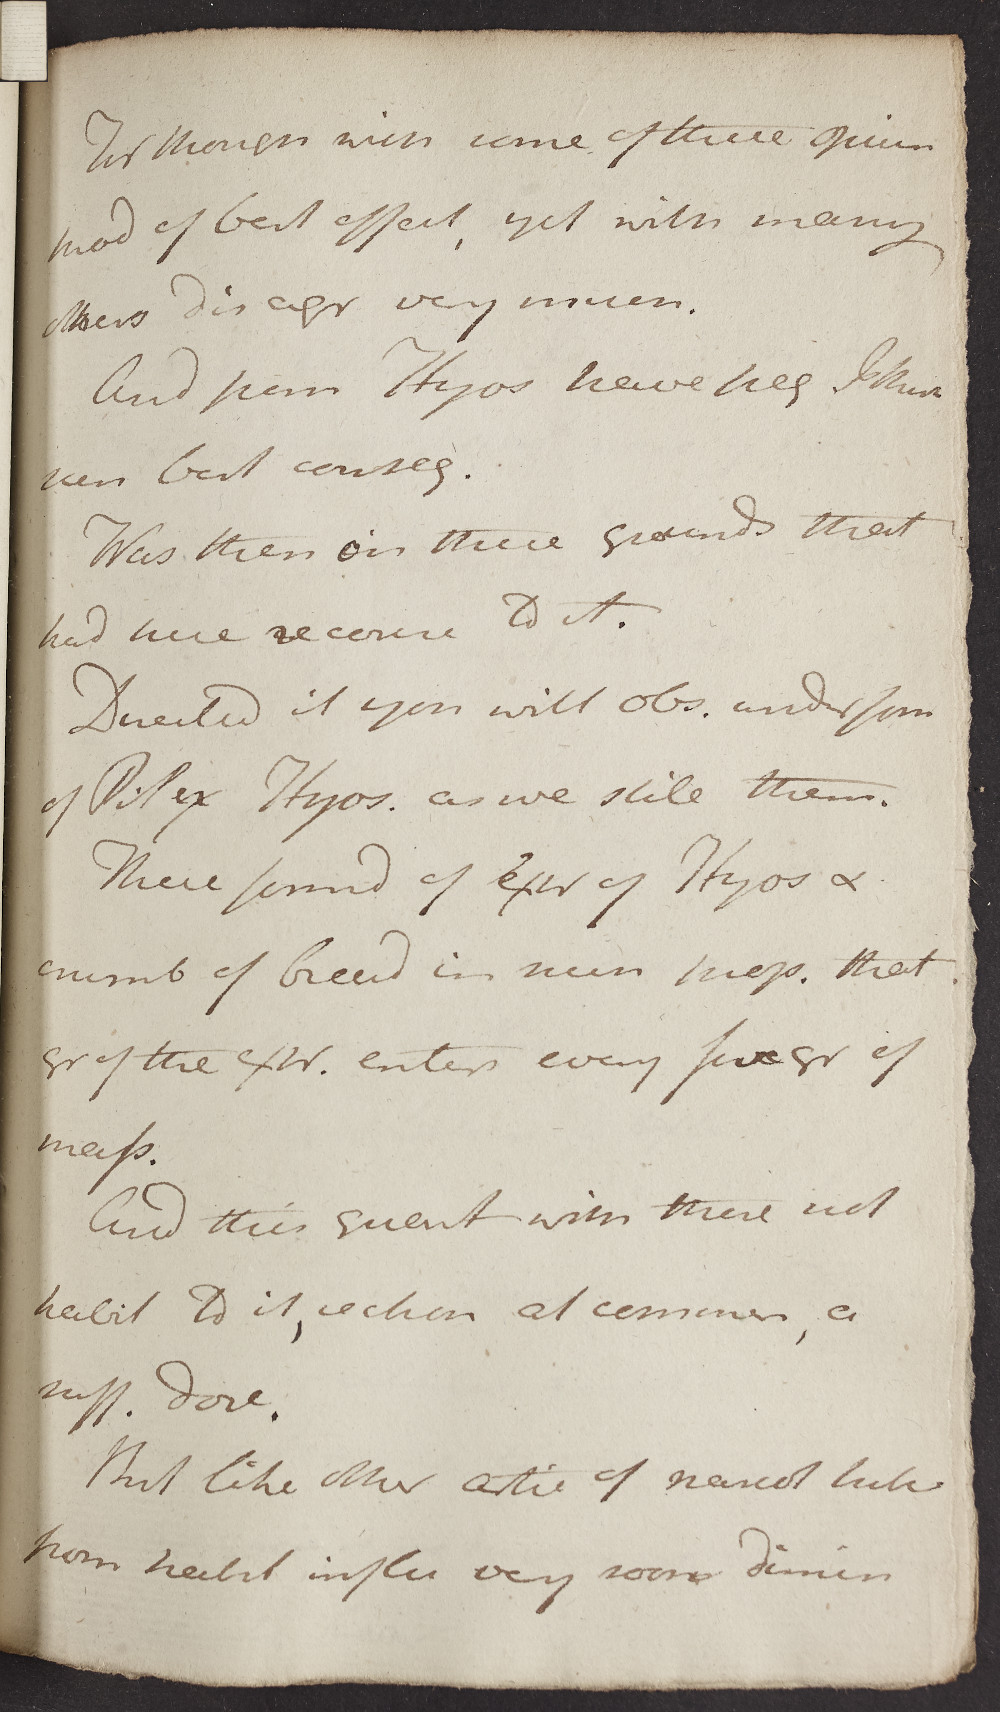 For though with some of these Opium
prod of best effect, yet with many
others disagr very much.
And from Hyos have freq I think
seen best conseq.
Was then on these grounds that
had here recourse to it.
Directed it you will obs. under form
of Pil ex Hyos. as we stile them.
These formd of Extr of Hyos &
crumb of bread in such prop. that
gr of the extr. enters every five gr of
mass.
And this quant with those not
habit to it, reckon at commen, a
suff. dose.
But like other artic of narcot tribe
from habit influ very soon dimin